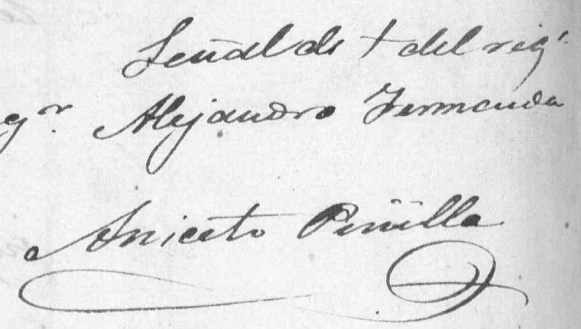 Señal de + del regr
Alejandro Fernanda
Aniceto Pinilla